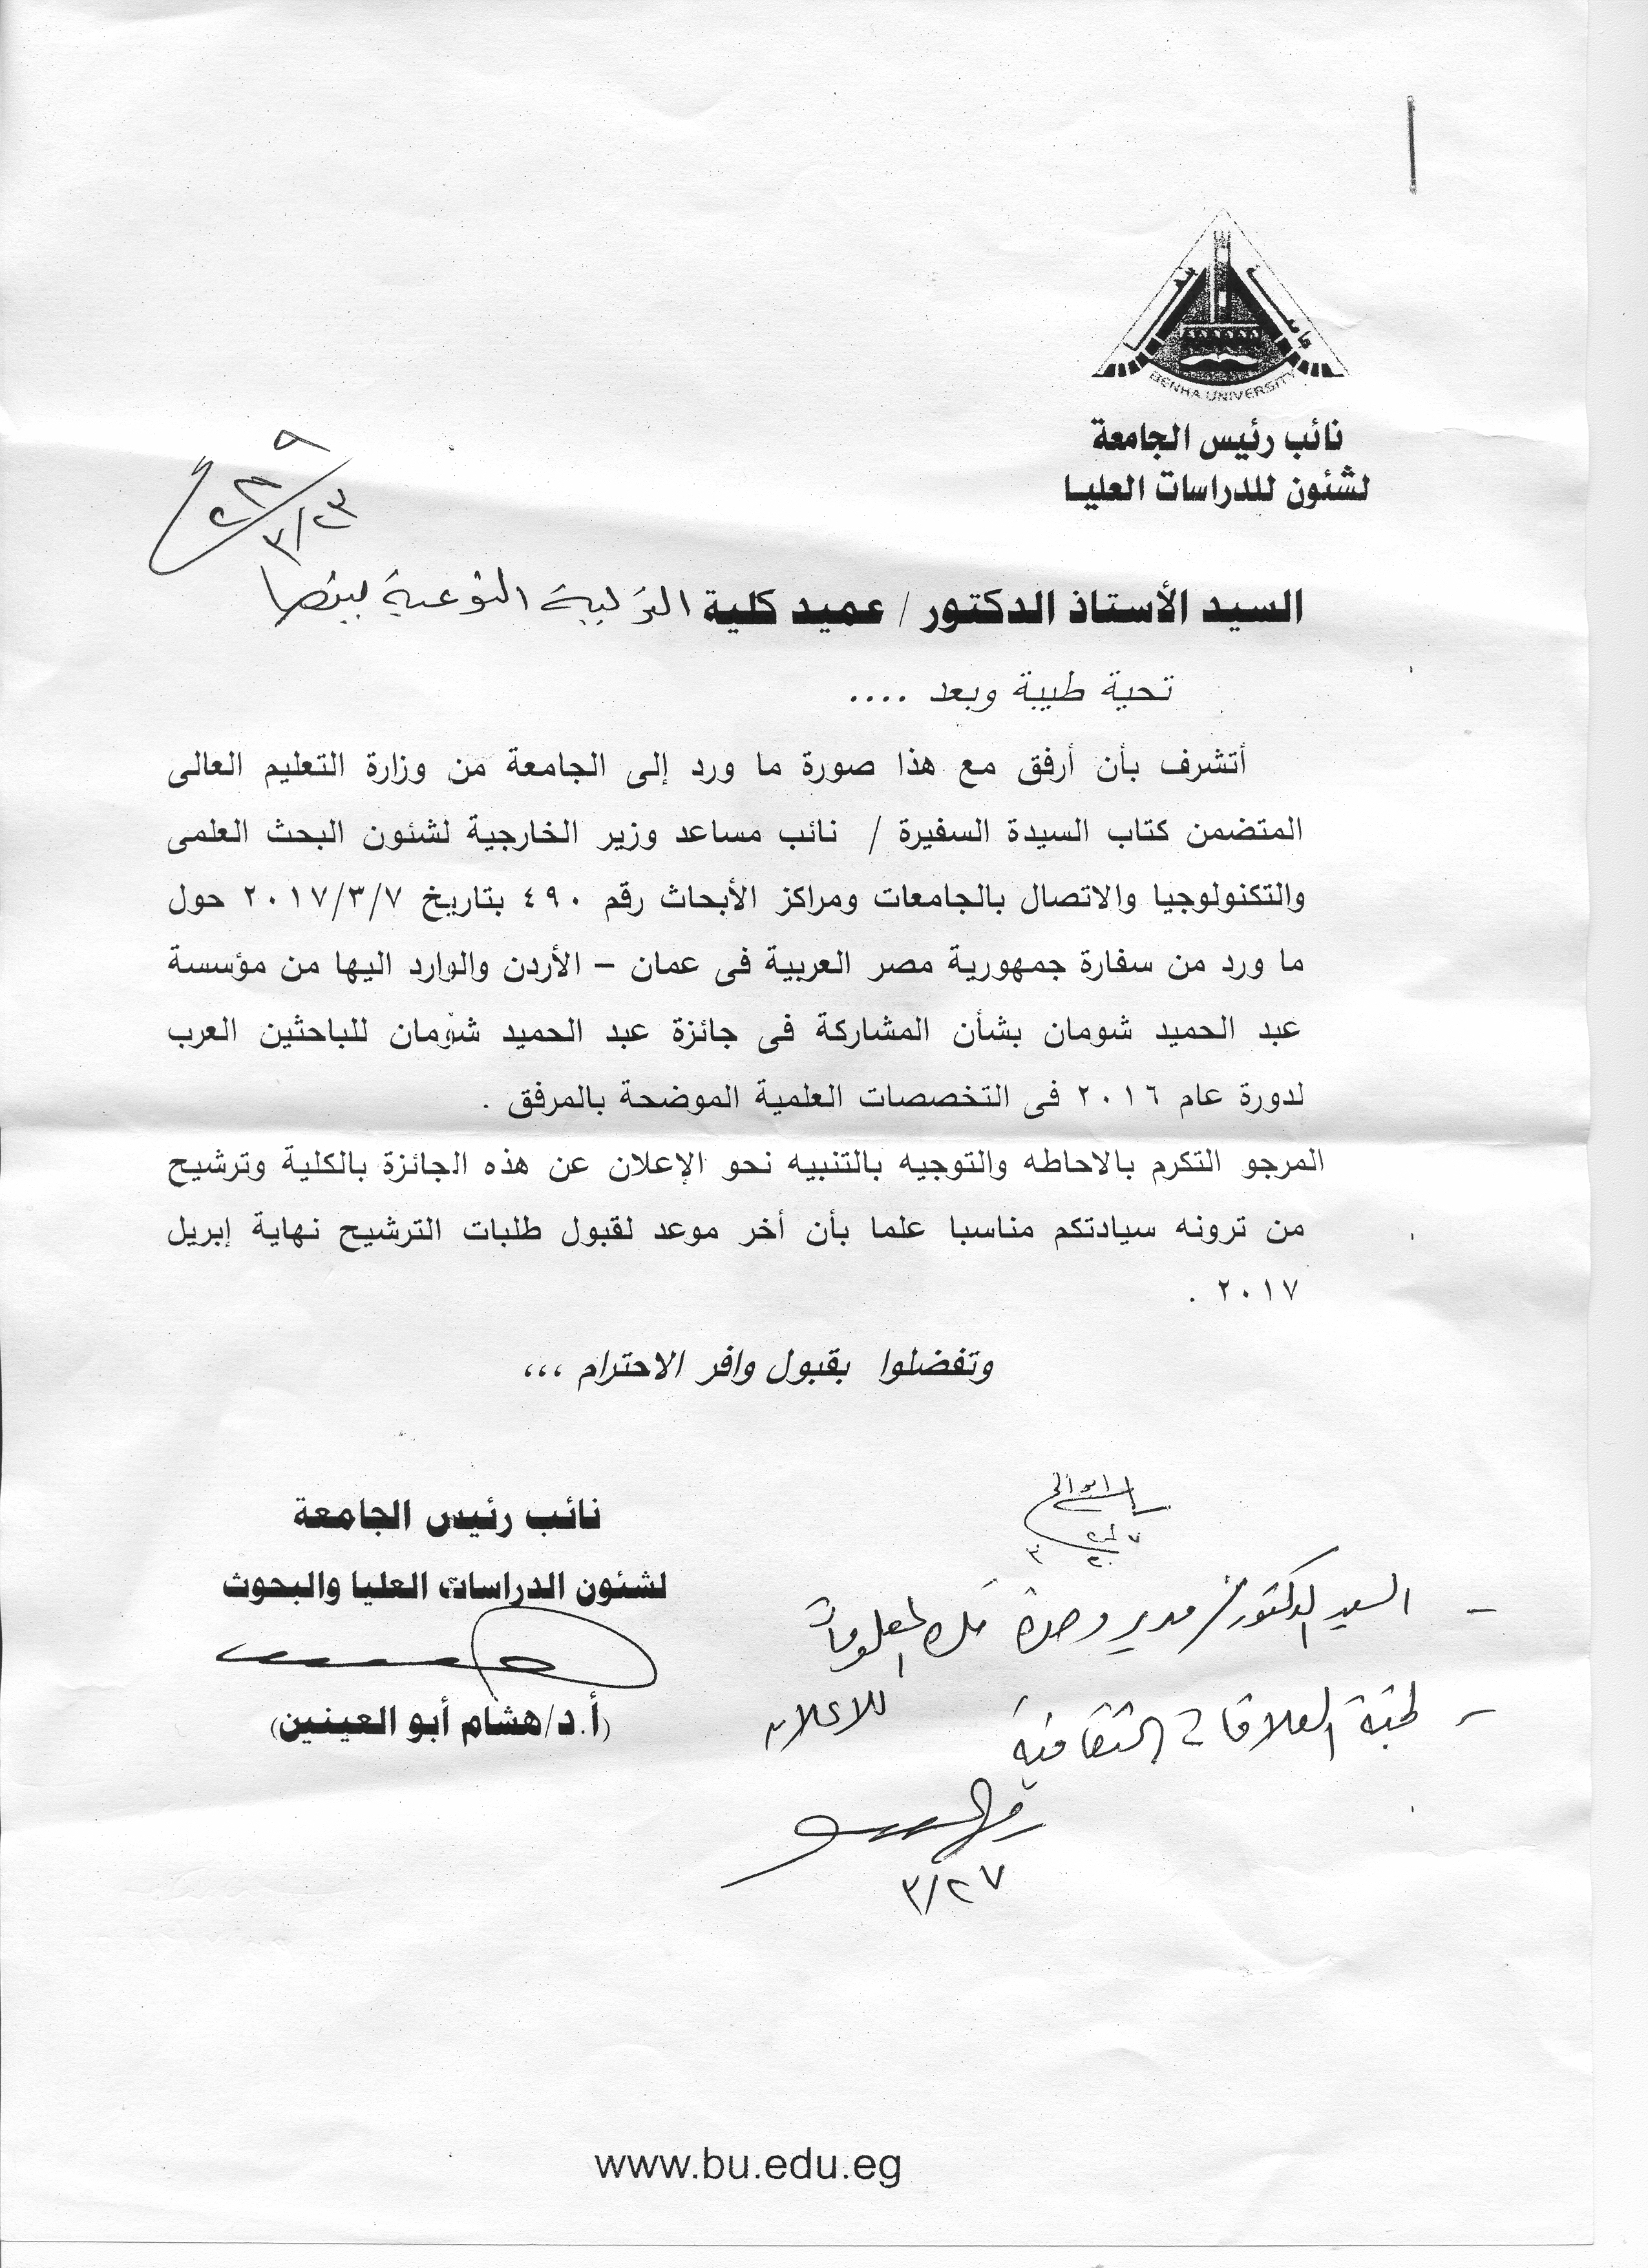 BENHA UNIVERSITY
نائب رئيس الجامعة
لشئون للدراسات العليا
٣/٢٣
السيد الأستاذ الدكتور / عميد كلية التربية النوعية ببنها
تحية طيبة وبعد ....
أتشرف بأن أرفق مع هذا صورة ما ورد إلى الجامعة من وزارة التعليم العالى
المتضمن كتاب السيدة السفيرة / نائب مساعد وزير الخارجية لشئون البحث العلمى
والتكنولوجيا والاتصال بالجامعات ومراكز الأبحاث رقم ٤٩٠ بتاريخ ٢٠١٧/٣/٧ حول
ما ورد من سفارة جمهورية مصر العربية فى عمان – الأردن والوارد اليها من مؤسسة
عبد الحميد شومان بشأن المشاركة فى جائزة عبد الحميد شومان للباحثين العرب
لدورة عام ٢٠١٦ فى التخصصات العلمية الموضحة بالمرفق .
المرجو التكرم بالاحاطه والتوجيه بالتنبيه نحو الإعلان عن هذه الجائزة بالكلية وترشيح
من ترونه سيادتكم مناسبا علما بأن أخر موعد لقبول طلبات الترشيح نهاية إبريل
٢٠١٧ .
وتفضلوا بقبول وافر الاحترام ،،،
نائب رئيس الجامعة
لشئون الدراسات العليا والبحوث
(أ.د/هشام أبو العينين)
- السيد الدكتور / مدير وحدة المعلومات
- لجنة العلاقات الثقافية للاعلان
٣/٢٧
www.bu.edu.eg